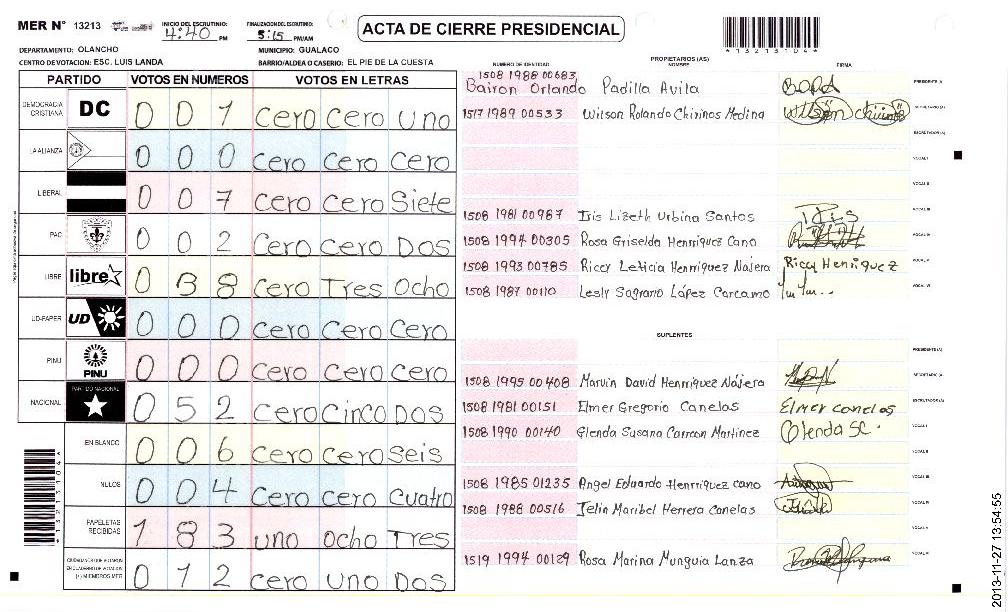 MER N° 13213
INICIO DEL ESCRUTINIO: 4:40 PM
FINALIZACION DEL ESCRUTINIO: 5:15 PM/AM
ACTA DE CIERRE PRESIDENCIAL
*1321310 4*
DEPARTAMENTO: OLANCHO
MUNICIPIO: GUALACO
CENTRO DE VOTACION: ESC. LUIS LANDA
BARRIO/ALDEA O CASERIO: EL PIE DE LA CUESTA
PARTIDO VOTOS EN NUMEROS VOTOS EN LETRAS
DEMOCRACIA CRISTIANA DC 0 0 1 Cero Cero Uno
LA ALIANZA 0 0 0 Cero Cero Cero
LIBERAL 0 0 7 Cero Cero Siete
PAC 0 0 2 Cero Cero Dos
LIBRE libre 0 3 8 Cero Tres Ocho
UD-FAPER UD 0 0 0 Cero Cero Cero
PINU PINU 0 0 0 Cero Cero Cero
NACIONAL PARTIDO NACIONAL 0 5 2 Cero Cinco Dos
EN BLANCO 0 0 6 Cero Cero Seis
NULOS 0 0 4 Cero Cero Cuatro
PAPELETAS RECIBIDAS 1 8 3 Uno Ocho Tres
CIUDADANOS QUE VOTARON EN CUADERNO DE VOTACION (+) MIEMBROS MER 0 1 2 Cero Uno Dos
PROPIETARIOS (AS)
NUMERO DE IDENTIDAD NOMBRE FIRMA
1508 1988 00683 Bairon Orlando Padilla Avila BOPA PRESIDENTE (A)
1517 1989 00533 Wilson Rolando Chirinos Medina Wilson Chirinos SECRETARIO (A)
ESCRUTADOR (A)
VOCAL I
VOCAL II
1508 1981 00987 Iris Lizeth Urbina Santos VOCAL III
1508 1994 00305 Rosa Griselda Henriquez Cano VOCAL IV
1508 1993 00785 Riccy Leticia Henriquez Najera Riccy Henriquez VOCAL V
1508 1987 00110 Lesly Sagrario López Carcamo VOCAL VI
SUPLENTES
PRESIDENTE (A)
1508 1995 00408 Marvin David Henriquez Nájera SECRETARIO (A)
1508 1981 00151 Elmer Gregorio Canelas Elmer canelas ESCRUTADOR (A)
1508 1990 00140 Glenda Susana Carcan Martinez Glenda SC. VOCAL I
VOCAL II
1508 1985 01235 Angel Eduardo Henriquez Cano VOCAL III
1508 1988 00516 Telin Maribel Herrera Canelas VOCAL IV
VOCAL V
1519 1994 00129 Rosa Marina Munguia Lanza VOCAL VI
2013-11-27 13:54:55